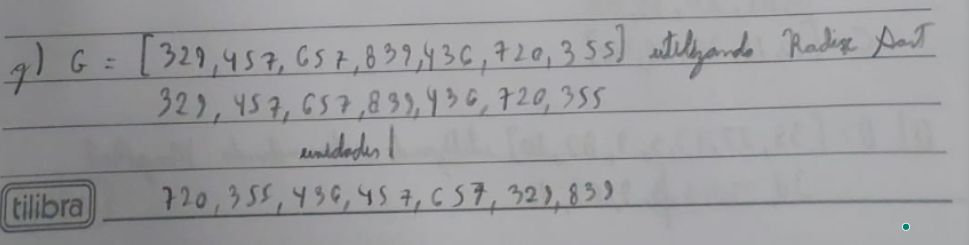 g) G = [329, 457, 657, 839, 436, 720, 355] utilizando Radix Sort
329, 457, 657, 839, 436, 720, 355
unidades |
tilibra
720, 355, 436, 457, 657, 329, 839